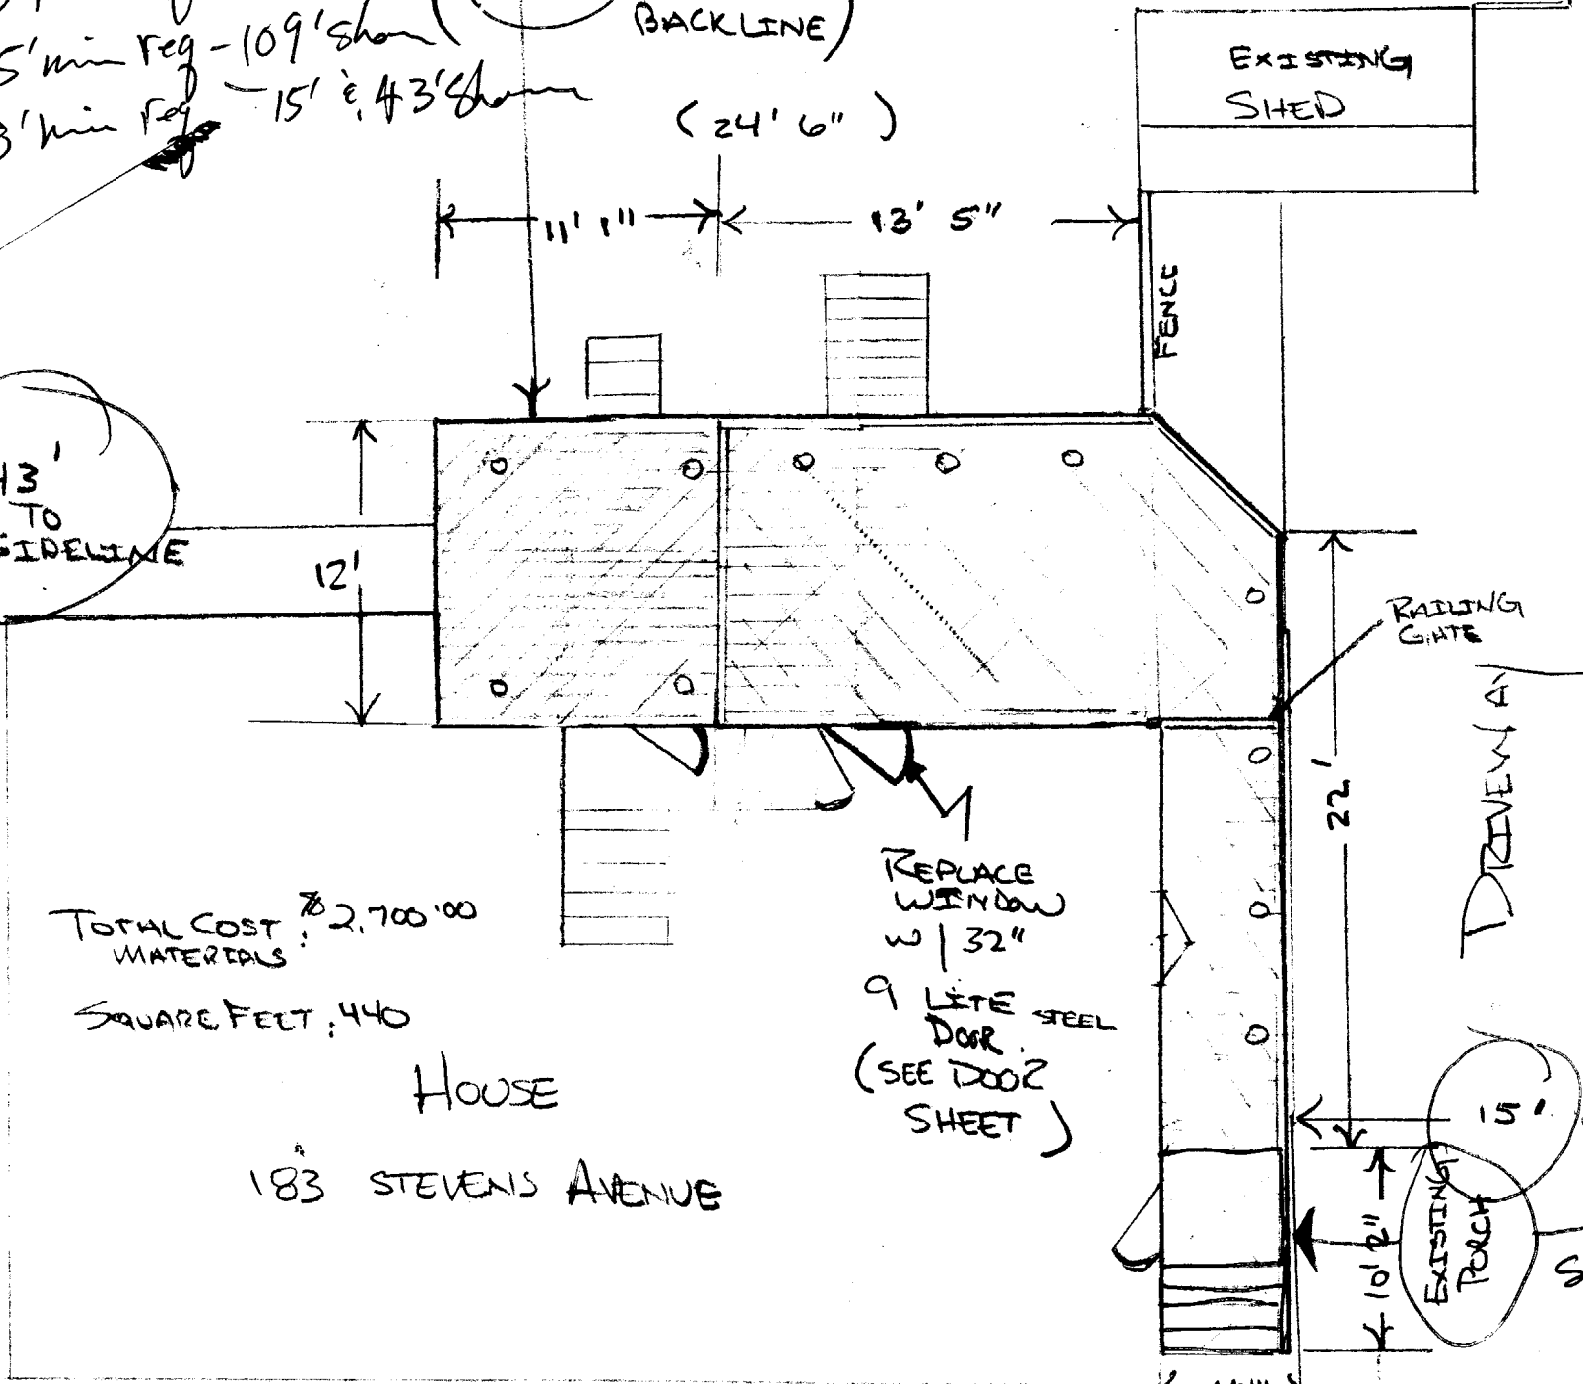 5' min req - 109' shown (
BACKLINE)
3' min req - 15' & 43' shown
(24' 6")
EXISTING
SHED
11' 1"
13' 5"
FENCE
43'
TO
SIDELINE
12'
RAILING
GATE
DRIVEWAY
22'
REPLACE
WINDOW
W/ 32"
9 LITE STEEL
DOOR
(SEE DOOR
SHEET)
TOTAL COST : $2,700.00
MATERIALS
SQUARE FEET : 440
HOUSE
183 STEVENS AVENUE
15'
10' 2"
EXISTING
PORCH
S